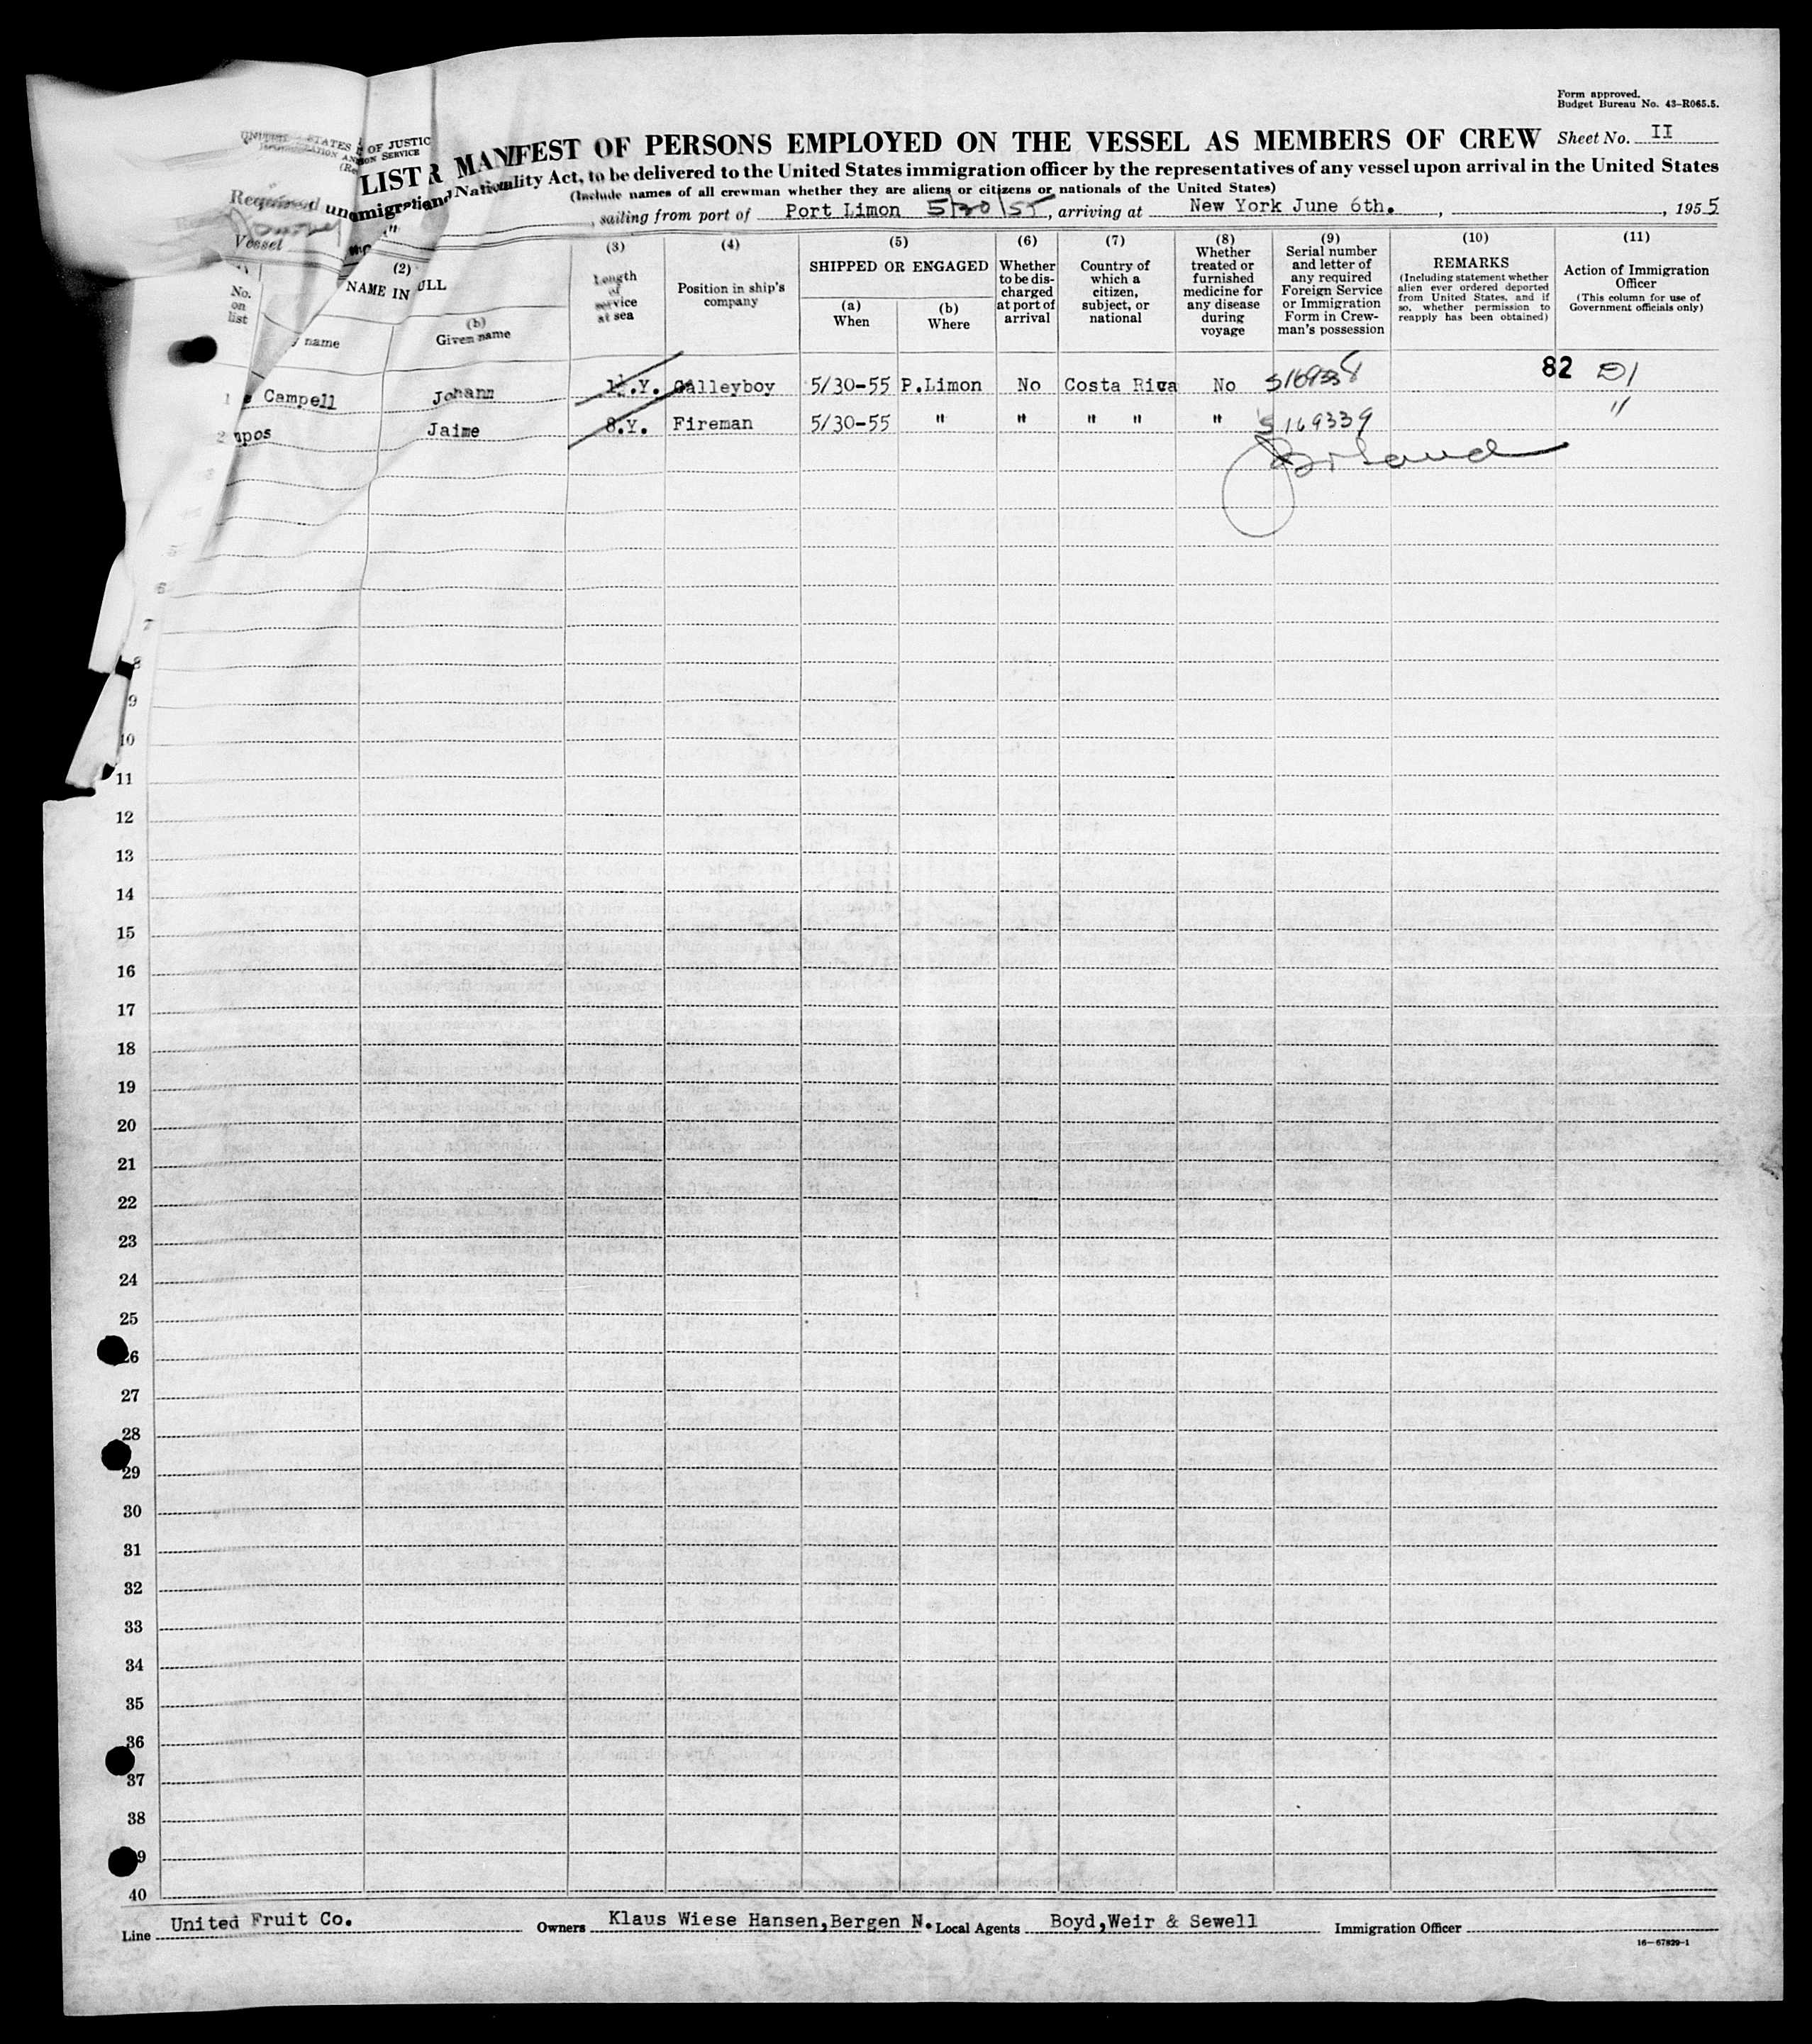 Form approved.
Budget Bureau No. 43-R065.5.
UNITED STATES OF JUSTIC
ION SERVICE
LIST R MANIFEST OF PERSONS EMPLOYED ON THE VESSEL AS MEMBERS OF CREW Sheet No. II
Required un migration Nationality Act, to be delivered to the United States immigration officer by the representatives of any vessel upon arrival in the United States
(Include names of all crewman whether they are aliens or citizens or nationals of the United States)
Vessel , sailing from port of Port Limon 5/30/55, arriving at New York June 6th. , , 1955
(2) (3) (4) (5) (6) (7) (8) (9) (10) (11)
No. on list
NAME IN ULL
name
(b) Given name
Length of service at sea
Position in ship's company
SHIPPED OR ENGAGED
(a) When
(b) Where
Whether to be discharged at port of arrival
Country of which a citizen, subject, or national
Whether treated or furnished medicine for any disease during voyage
Serial number and letter of any required Foreign Service or Immigration Form in Crew-man's possession
REMARKS
(Including statement whether alien ever ordered deported from United States, and if so, whether permission to reapply has been obtained)
Action of Immigration Officer
(This column for use of Government officials only)
1 Campell Johann 1½.Y. Galleyboy 5/30-55 P.Limon No Costa Rica No S169338 82 D1
2 mpos Jaime 8.Y. Fireman 5/30-55 " " " " " S169339 "
3
4
5
6
7
8
9
10
11
12
13
14
15
16
17
18
19
20
21
22
23
24
25
26
27
28
29
30
31
32
33
34
35
36
37
38
39
40
Line United Fruit Co. Owners Klaus Wiese Hansen,Bergen N. Local Agents Boyd,Weir & Sewell Immigration Officer
16—67829-1